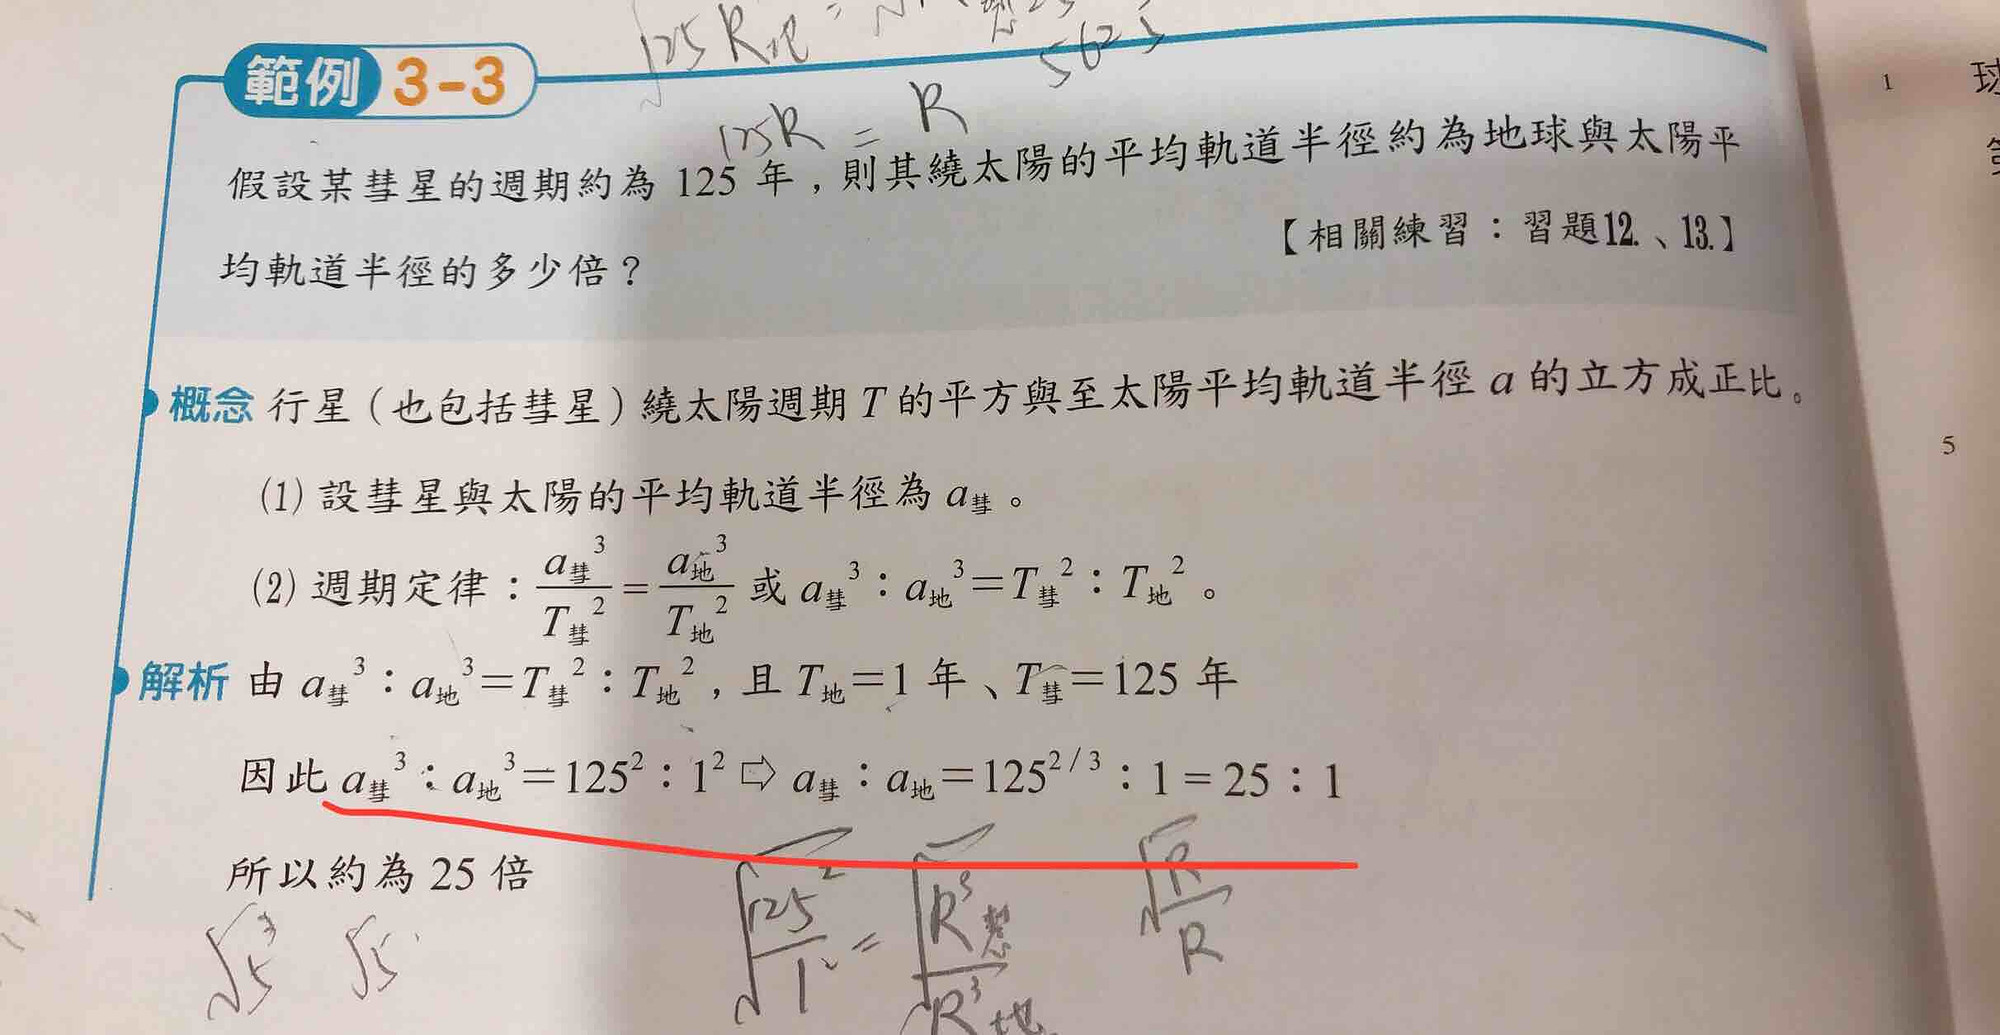 125 R地 =
5625
範例 3-3
125R = R
假設某彗星的週期約為 125 年，則其繞太陽的平均軌道半徑約為地球與太陽平
均軌道半徑的多少倍？
【相關練習：習題12.、13.】
概念 行星（也包括彗星）繞太陽週期 T 的平方與至太陽平均軌道半徑 a 的立方成正比。
(1) 設彗星與太陽的平均軌道半徑為 a彗。
(2) 週期定律：a彗³/T彗² = a地³/T地² 或 a彗³：a地³＝T彗²：T地²。
解析 由 a彗³：a地³＝T彗²：T地²，且 T地＝1 年、T彗＝125 年
因此 a彗³：a地³＝125²：1² ⇨ a彗：a地＝125^2/3：1＝25：1
所以約為 25 倍
√(125²/1) = √(R³慧/R³地)
√R/R
√5³ √5
1
球
5